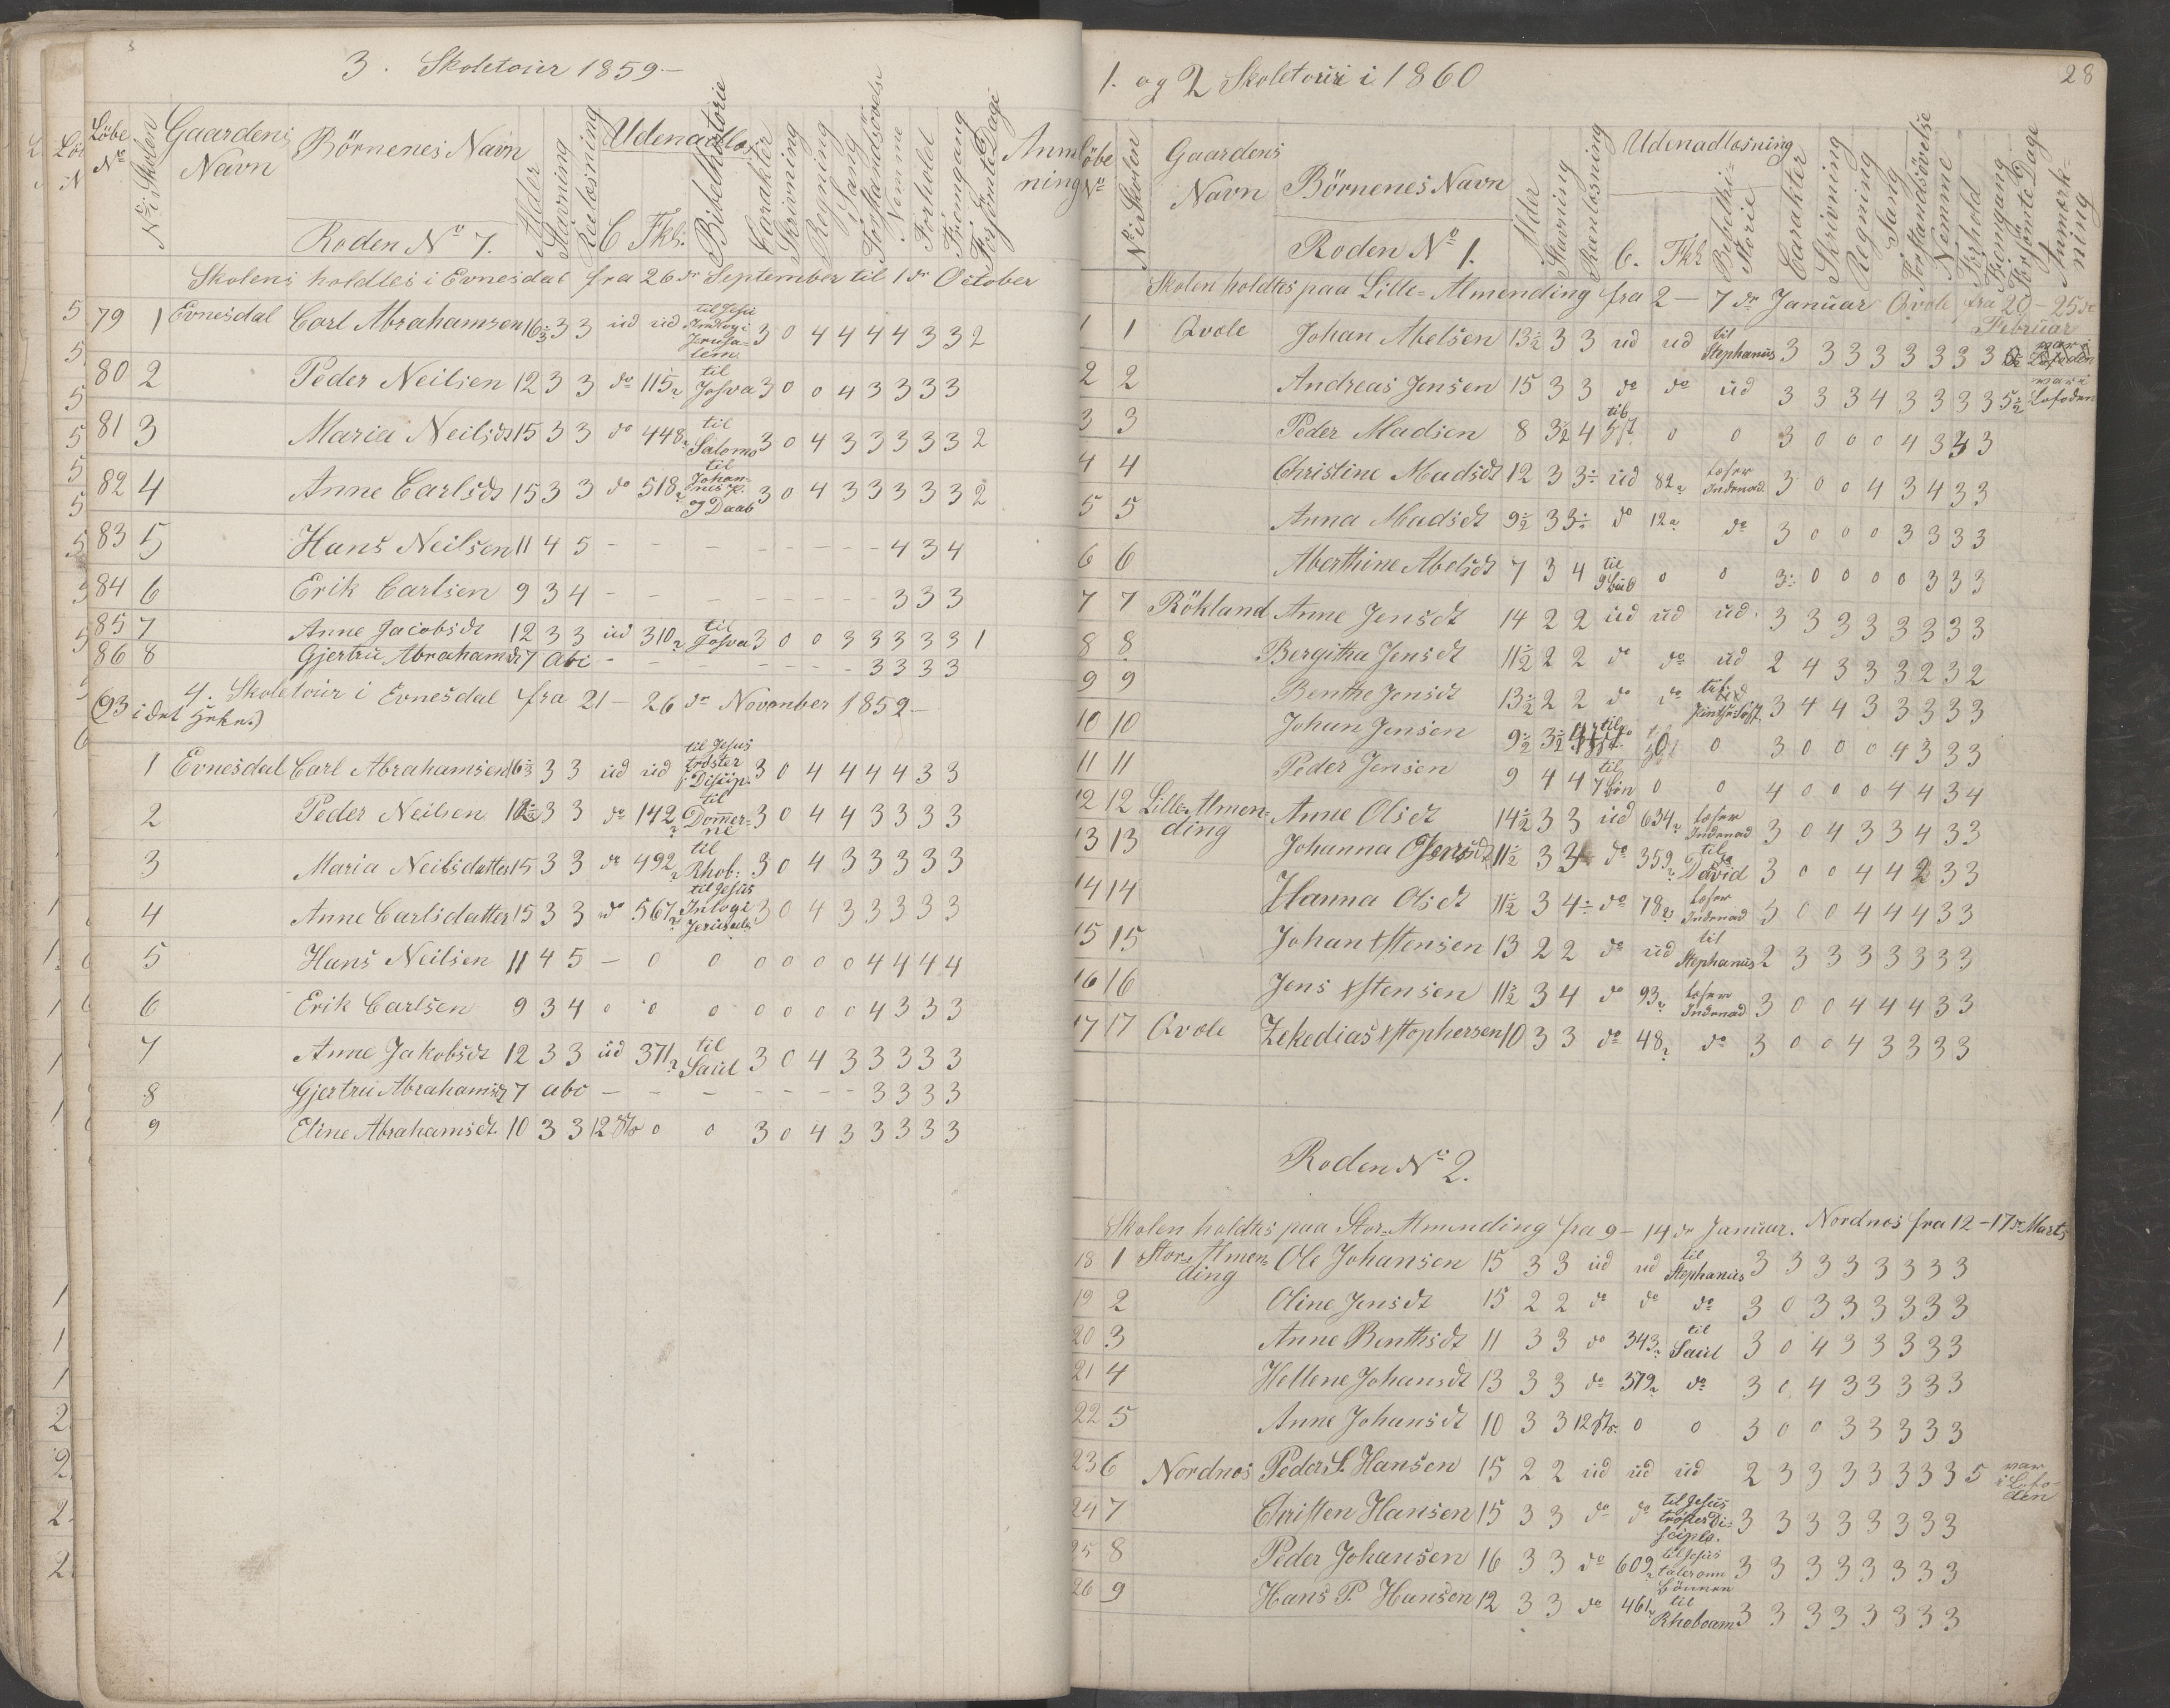 3. Skoletour 1859.-
Löbe No No i Skolen Gaardens Navn Börnenes Navn Alder Stavning Reenlæsning Udenadlæs. C. Fkl. Bibelhistorie Carakter Skrivning Regning Sang Forstandsövelse Nemme Forhold Fremgang Forsömte Dage Anm ning
Roden No 7.
Skolens holdtes i Evnesdal fra 26de September til 1de October
79 1 Evnesdal Carl Abrahamsen 16½ 3 3 ud ud til Jesu Indtog i Jerusalem 3 0 4 4 4 4 3 3 2
80 2 Peder Neilsen 12 3 3 do 115 til Josva 3 0 0 4 3 3 3 3
81 3 Maria Neilsdt 15 3 3 do 448 til Salomo 3 0 4 3 3 3 3 3 2
82 4 Anne Carlsdt 15 3 3 do 518 til Johannes p. og Daab 3 0 4 3 3 3 3 3 2
83 5 Hans Neilsen 11 4 5 - - - - - - - - 4 3 4
84 6 Erik Carlsen 9 3 4 - - - - - - - - 3 3 3
85 7 Anne Jacobsdt 12 3 3 ud 310 til Josva 3 0 0 3 3 3 3 3 1
86 8 Gjertru Abrahamsdt 7 abc - - - - - - - 3 3 3 3
4. Skoletour i Evnesdal fra 21 - 26de November 1859 -
(93 i det Hele.)
1 Evnesdal Carl Abrahamsen 16½ 3 3 ud ud til Jesus tröster s. Discip. 3 0 4 4 4 4 3 3
2 Peder Neilsen 12½ 3 3 do 142 til Dommerne 3 0 4 4 3 3 3 3
3 Maria Neilsdatter 15 3 3 do 492 til Rhob: 3 0 4 3 3 3 3 3
4 Anne Carlsdatter 15 3 3 do 567 til Jesus Intog i Jerusalem 3 0 4 3 3 3 3 3
5 Hans Neilsen 11 4 5 - 0 0 0 0 0 0 4 4 4 4
6 Erik Carlsen 9 3 4 0 0 0 0 0 0 0 4 3 3 3
7 Anne Jakobsdt 12 3 3 ud 371 til Saul 3 0 4 3 3 3 3 3
8 Gjertru Abrahamsdt 7 abc - - - - - - - 3 3 3 3
9 Eline Abrahamsdt. 10 3 3 12 0 0 3 0 4 3 3 3 3 3
1. og 2 Skoletour i 1860
28
Löbe No No i Skolen Gaardens Navn Börnenes Navn Alder Stavning Reenlæsning Udenadlæsning C. Fkl Bibelhistorie Carakter Skrivning Regning Sang Forstandsövelse Nemme Forhold Fremgang Forsömte Dage Anmærkning
Roden No 1.
Skolen holdtes paa Lille-Almending fra 2 - 7de Januar Qvole fra 20 - 25de Februar
1 1 Qvole Johan Abelsen 13½ 3 3 ud ud til Stephanus 3 3 3 3 3 3 3 3 3
2 2 Andreas Jensen 15 3 3 do do ud 3 3 3 4 3 3 3 3 5½ var i Lofoden
3 3 Peder Madsen 8 3½ 4 til 0 0 3 0 0 0 4 3 3 3
4 4 Christine Madsdt 12 3 3÷ ud 82 læser Indenad. 3 0 0 4 3 4 3 3
5 5 Anna Madsdt 9½ 3 3÷ do 12 do 3 0 0 0 3 3 3 3
6 6 Aberthine Abelsdt 7 3 4 til 9 Bud 0 0 3÷ 0 0 0 0 3 3 3
7 7 Rökland Anne Jensdt 14 2 2 ud ud ud. 3 3 3 3 3 3 3 3
8 8 Bergitha Jensdt 11½ 2 2 do do ud 2 4 3 3 3 2 3 2
9 9 Benthe Jensdt 13½ 2 2 do do til 3 4 4 3 3 3 3 3
10 10 Johan Jensen 9½ 3½ 0 3 0 0 0 4 3 3 3
11 11 Peder Jensen 9 4 4 til 7 Bön 0 0 4 0 0 0 4 4 3 4
12 12 Lille-Almending Anne Olsdt 14½ 3 3 ud 634 læser Indenad 3 0 4 3 3 4 3 3
13 13 Johanna 11½ 3 3 do 359 til David 3 0 0 4 4 2 3 3
14 14 Hanna Olsdt 11½ 3 4÷ do 78 læser Indenad 3 0 0 4 4 4 3 3
15 15 Johan Xstensen 13 2 2 do ud til Stephanus 2 3 3 3 3 3 3 3
16 16 Jens Xstensen 11½ 3 4 do 93 læser Indenad 3 0 0 4 4 4 3 3
17 17 Qvole Zekedias Xstophersen 10 3 3 do 48 do 3 0 0 4 3 3 3 3
Roden No 2.
Skolen holdtes paa Stor-Almending fra 9 - 14de Januar. Nordnes fra 12 - 17de Marts
18 1 Stor-Almending Ole Johansen 15 3 3 ud ud til Stephanus 3 3 3 3 3 3 3 3
19 2 Oline Jensdt 15 2 2 do do do 3 0 3 3 3 3 3 3
20 3 Anne Benthsdt 11 3 3 do 343 til Saul 3 0 4 3 3 3 3 3
21 4 Hellene Johansdt 13 3 3 do 379 do 3 0 4 3 3 3 3 3
22 5 Anne Johansdt 10 3 3 12 0 0 3 0 0 3 3 3 3 3
23 6 Nordnes Peder S. Hansen 15 2 2 ud ud ud 2 3 3 3 3 3 3 3 5 var i Lofoden
24 7 Christen Hansen 15 3 3 do do til Jesus tröster Disciple. 3 3 3 3 3 3 3 3
25 8 Peder Johansen 16 3 3 do 609 til Jesus taler om Bönnen 3 3 3 3 3 3 3 3
26 9 Hans P. Hansen 12 3 3 do 461 til Rhoboam 3 3 3 3 3 3 3 3